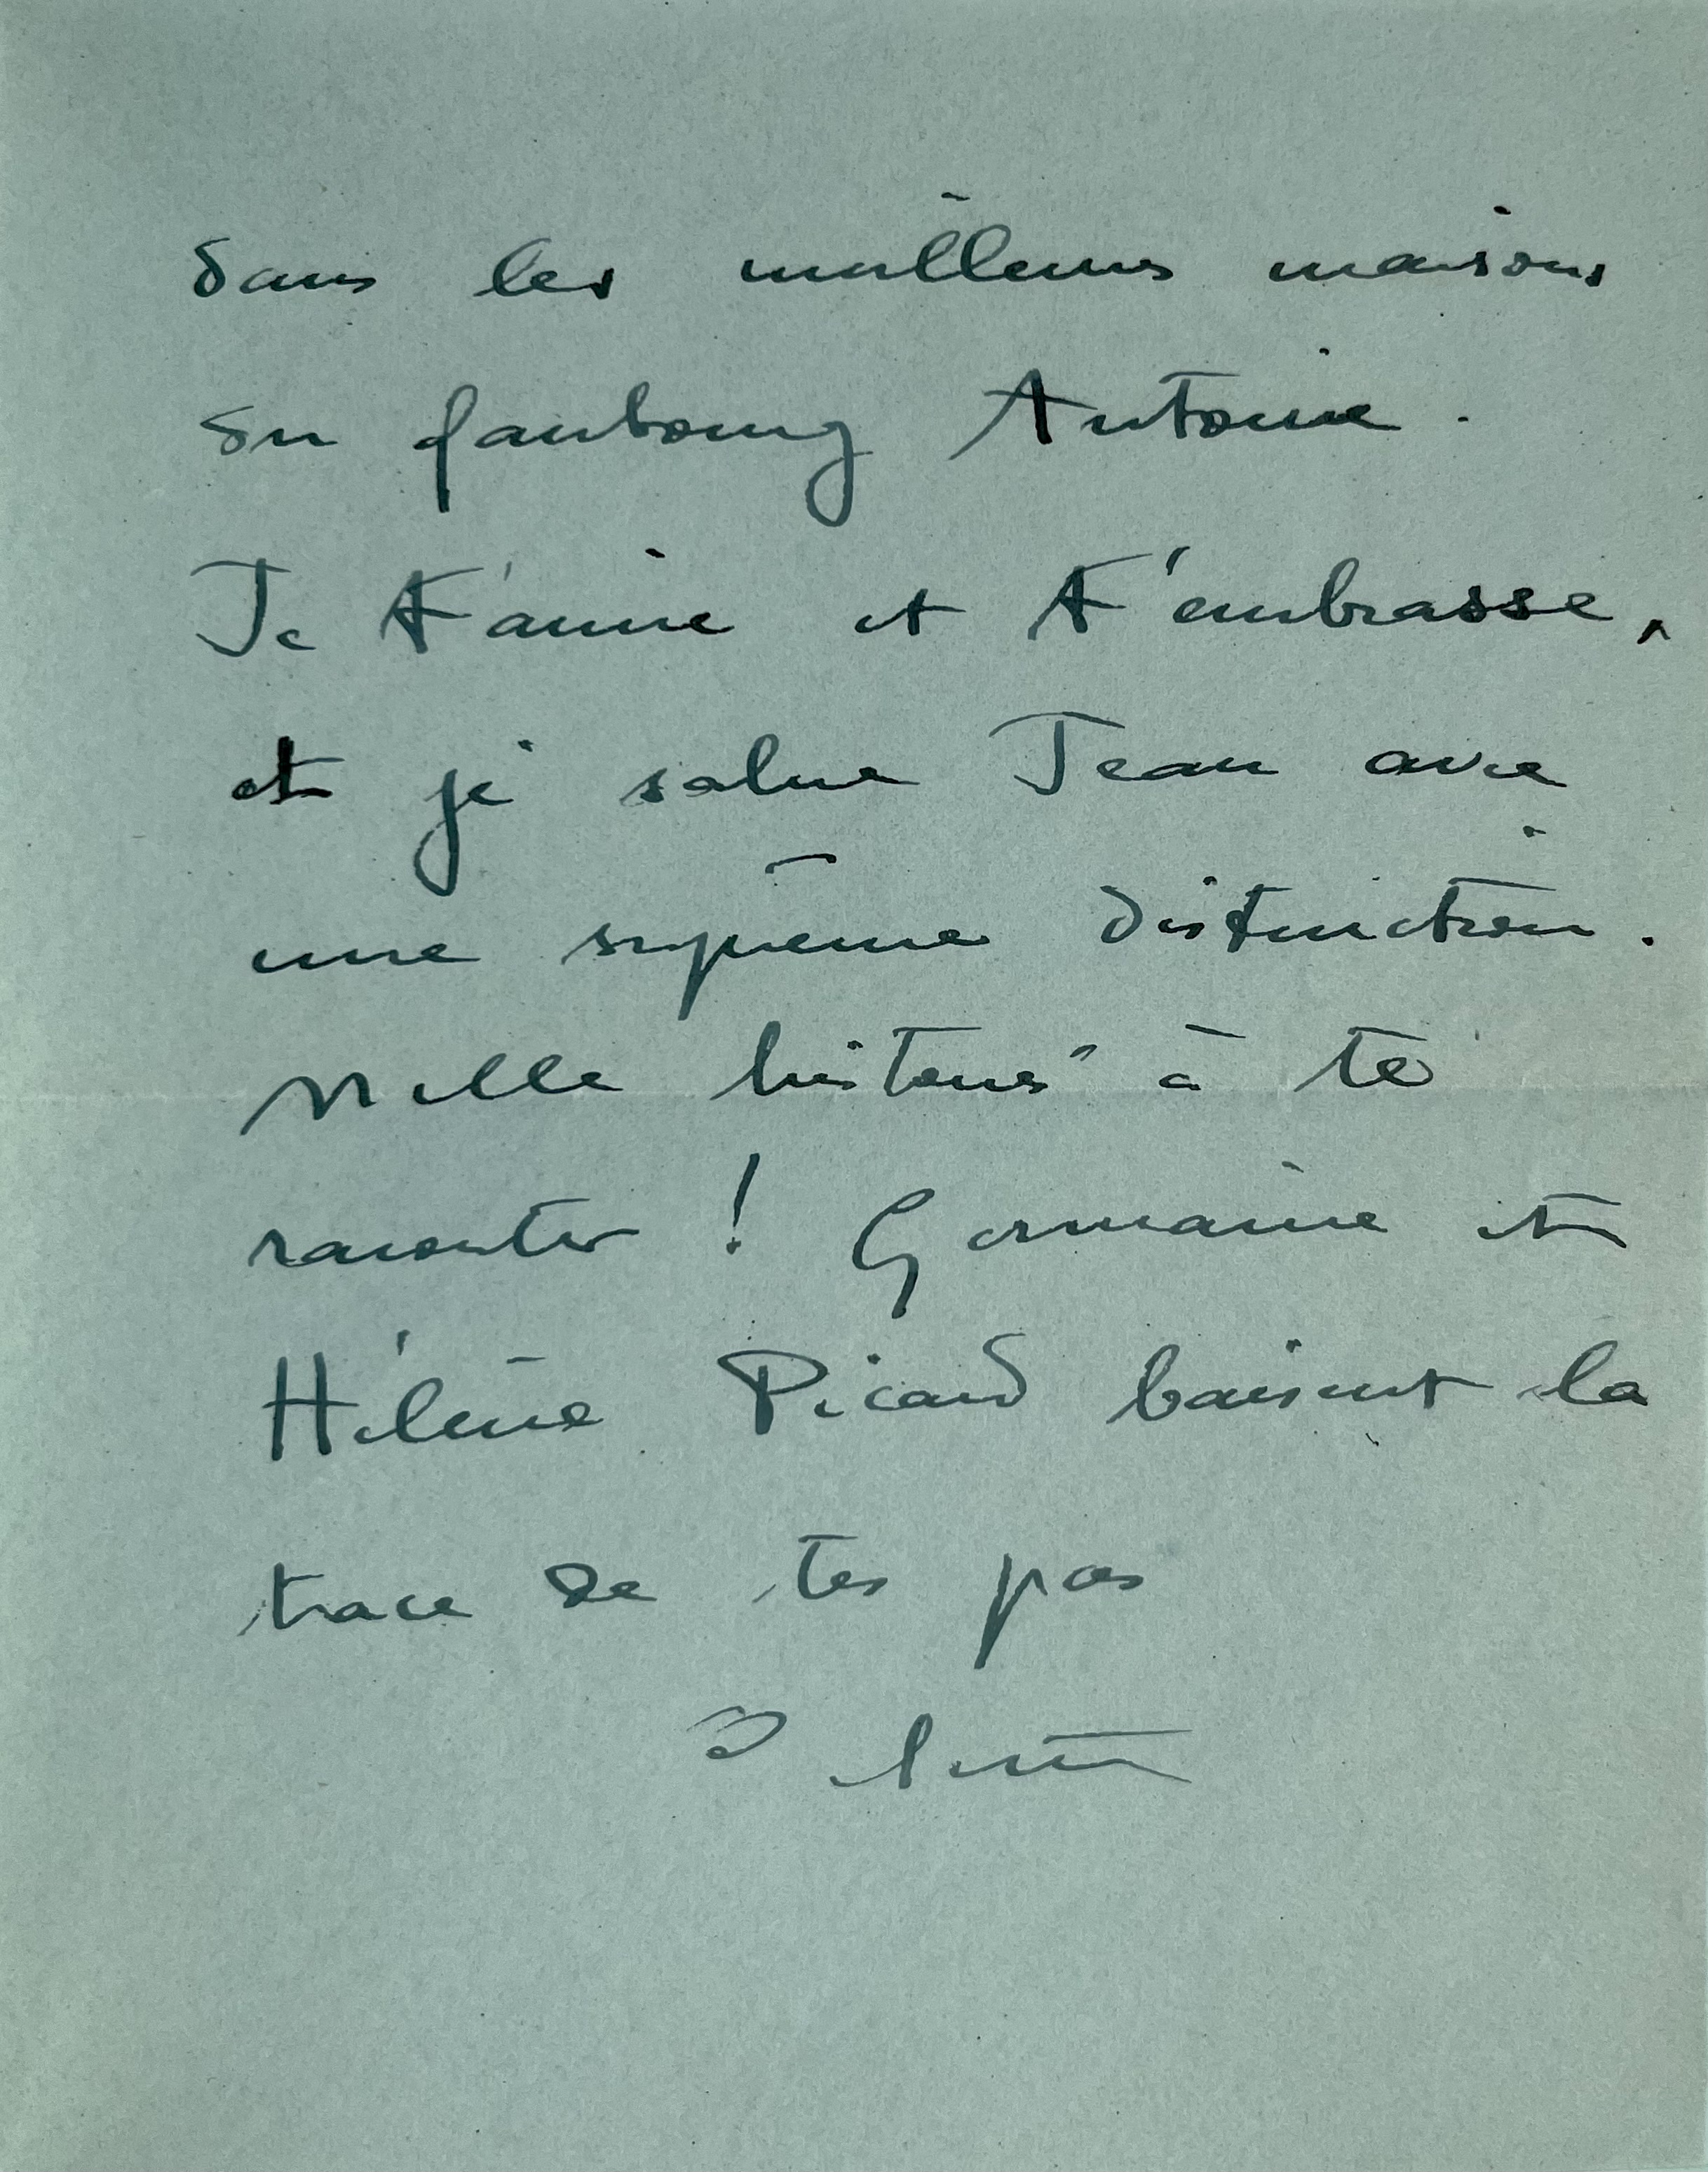 dans les meilleures maisons
du faubourg Antoine.
Je t'aime et t'embrasse,
et je salue Jean avec
une suprême distinction.
Mille histoires à te
raconter ! Germaine et
Hélène Picard baisent la
trace de tes pas
Colette